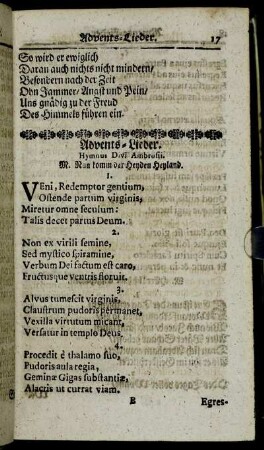 Advents-Lieder. 17
So wird er ewiglich
Daran auch nichts nicht mindern/
Besondern nach der Zeit
Ohn Jammer/ Angst und Pein/
Uns gnädig zu der Freud
Des Himmels führen ein.
Advents-Lieder.
Hymnus Divi Ambrosii.
M. Nun komm der Heyden Heyland.
1.
VEni, Redemptor gentium,
Ostende partum virginis,
Miretur omne seculum:
Talis decet partus Deum.
2.
Non ex virili semine,
Sed mystico spiramine,
Verbum Dei factum est caro,
Fructusque ventris floruit.
3.
Alvus tumescit virginis,
Claustrum pudoris permanet,
Vexilla virtutum micant,
Versatur in templo Deus.
4.
Procedit è thalamo suo,
Pudoris aula regia,
Geminæ Gigas substantiæ,
Alacris ut currat viam.
B Egres-